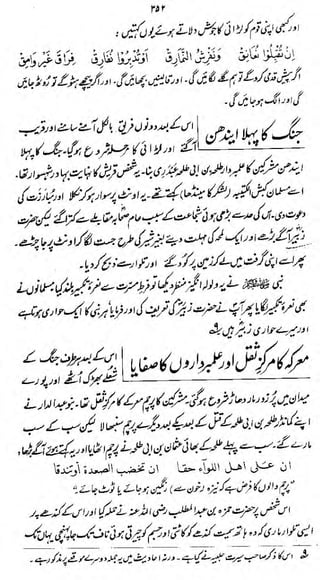 ۳۵۲
اور کبھی اپنی قوم کو لڑائی کا جوش دلاتے ہوئے یوں کہتیں:
اِنْ تُقْبِلُوْا نُعَانِقْ وَنَفْرِشُ النَّمَارِقْ اَوْ تُدْبِرُوْا نُفَارِقْ فِرَاقَ غَيْرِ وَامِقْ
اگر پیش قدمی کرو گے تو ہم گلے لگائیں گی۔ اور قالینیں بچھائیں گی۔ اور اگر پیچھے ہٹو گے تو روٹھ جائیں
گی اور الگ ہو جائیں گی۔
جنگ کا پہلا ایندھن
اس کے بعد دونوں فریق بالکل آمنے سامنے اور قریب
آگئے اور لڑائی کا مرحلہ شروع ہوگیا۔ جنگ کا پہلا
ایندھن مشرکین کا علمبردار طلحہ بن ابی طلحہ عبدری بنا۔ یہ شخص قریش کا نہایت بہادر شہسوار تھا۔
اسے مسلمان کبش الکتیبہ (لشکر کا مینڈھا) کہتے تھے۔ یہ اونٹ پر سوار ہو کر نکلا اور مبارزت کی
دعوت دی۔ اس کی حد سے بڑھی ہوئی شجاعت کے سبب عام صحابہ مقابلے سے کترا گئے لیکن حضرت
زبیرؓ آگے بڑھے اور ایک لمحہ کی مہلت دیئے بغیر شیر کی طرح جست لگا کر اونٹ پر جا چڑھے۔
پھر اسے اپنی گرفت میں لے کر زمین پر کود گئے اور تلوار سے ذبح کر دیا۔
نبی ﷺ نے یہ ولولہ انگیز منظر دیکھا تو فرطِ مسرت سے نعرۂ تکبیر بلند کیا مسلمانوں نے
بھی نعرۂ تکبیر لگایا پھر آپؐ نے حضرت زبیرؓ کی تعریف کی اور فرمایا ہر نبی کا ایک حواری ہوتا ہے
اور میرے حواری زبیرؓ ہیں ؎
معرکہ کا مرکزِ ثقل اور علمبرداروں کا صفایا
اس کے بعد ہر طرف جنگ کے
شعلے بھڑک اُٹھے اور پورے
میدان میں پُر زور مار دھاڑ شروع ہوگئی۔ مشرکین کا پرچم معرکے کا مرکزِ ثقل تھا۔ بنو عبد الدار نے
اپنے کمانڈر طلحہ بن ابی طلحہ کے قتل کے بعد یکے بعد دیگرے پرچم سنبھالا لیکن سب کے سب
مارے گئے۔ سب سے پہلے طلحہ کے بھائی عثمان بن ابی طلحہ نے پرچم اٹھایا اور یہ کہتے ہوئے آگے بڑھا،
ان علی اهل اللواء حقا ان تخضب الصعدة اوتندقا
"پرچم والوں کا فرض ہے کہ نیزہ (خون سے) رنگین ہو جائے یا ٹوٹ جائے۔"
اس شخص پر حضرت حمزہ بن عبد المطلب رضی اللہ عنہ نے حملہ کیا اور اس کے کندھے پر
ایسی تلوار ماری کہ وہ ہاتھ سمیت کندھے کو کاٹتی اور جسم کو چیرتی ہوئی ناف تک جا پہنچی یہاں تک
؎ اس کا ذکر صاحب سیرت حلبیہ نے کیا ہے۔ ورنہ احادیث میں یہ جملہ دوسرے موقعے پر مذکور ہے۔